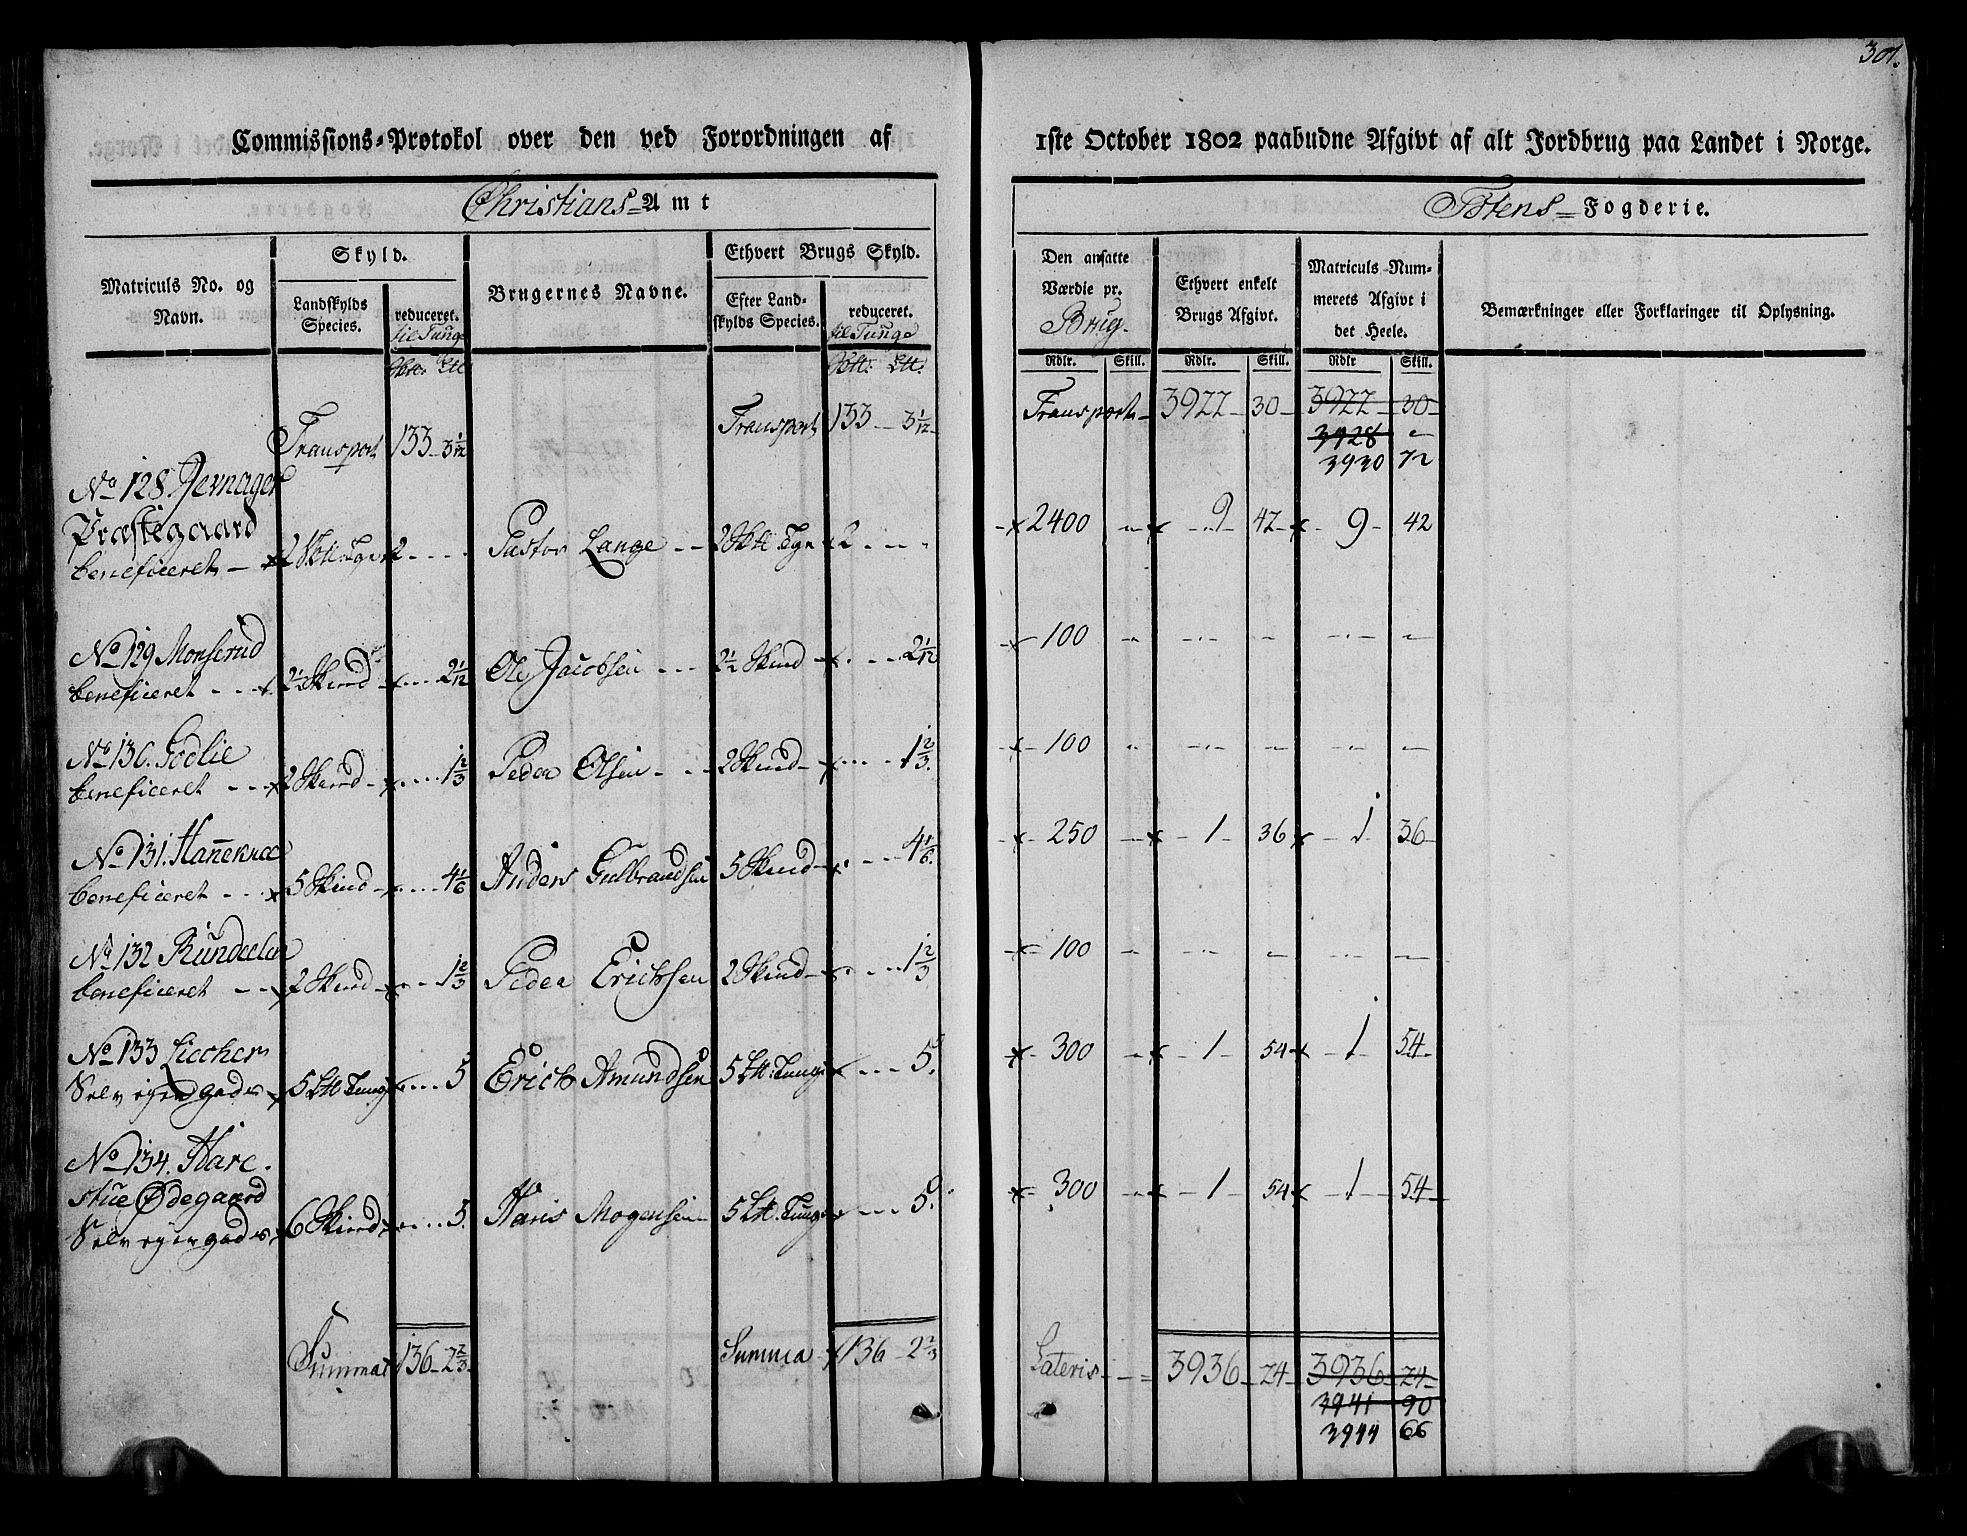 301.
Commissions-Protokol over den ved Forordningen af 1ste October 1802 paabudne Afgivt af alt Jordbrug paa Landet i Norge.
Christians Amt Totens Fogderie.
Matriculs No. og Navn. Skyld. Landskylds Species. reduceret. til Tunge Brugernes Navne. Ethvert Brugs Skyld. Efter Landskylds Species. reduceret. til Tunge Den ansatte Værdie pr. Brug. Ethvert enkelt Brugs Afgivt. Matriculs Nummerets Afgivt i det Heele. Bemærkninger eller Forklaringer til Oplysning.
Rdlr. Skill. Rdlr. Skill. Rdlr Skill.
Transport 133 3 1/12 Transport 133 3 1/12 Transport 3922 30 3922 30
3928
3930 72
No 128. Jevnager
Præstegaard
beneficeret 2 2 Pastor Lange 2 2 2400 9 42 9 42
No 129 Monserud
beneficeret 2 1/2 Skind 2 1/12 Ole Jacobsen 2 1/2 Skind 2 1/12 100
No 130. Godlie
beneficeret 2 Skind 1 2/3 Peder Olsen 2 Skind 1 2/3 100
No 131. Hannekra
beneficeret 5 Skind 4 1/6 Anders Gulbrandsen 5 Skind 4 1/6 250 1 36 1 36
No 132
beneficeret 2 Skind 1 2/3 Peder Erichsen 2 Skind 1 2/3 100
No 133
Selv ejergods 5 Ltt Tunge 5 Erich Amundsen 5 Ltt: Tunge 5. 300 1 54 1 54
No 134. Hare-
stue Ødegaard
Selv ejergods 6 Skind 5. Hans Mogensen 5 Ltt. Tunge 5. 300 1 54 1 54
Summa 136 2 2/3 Summa 136 2 2/3 Lateris 3936 24 3936 24
3941 90
3944 66